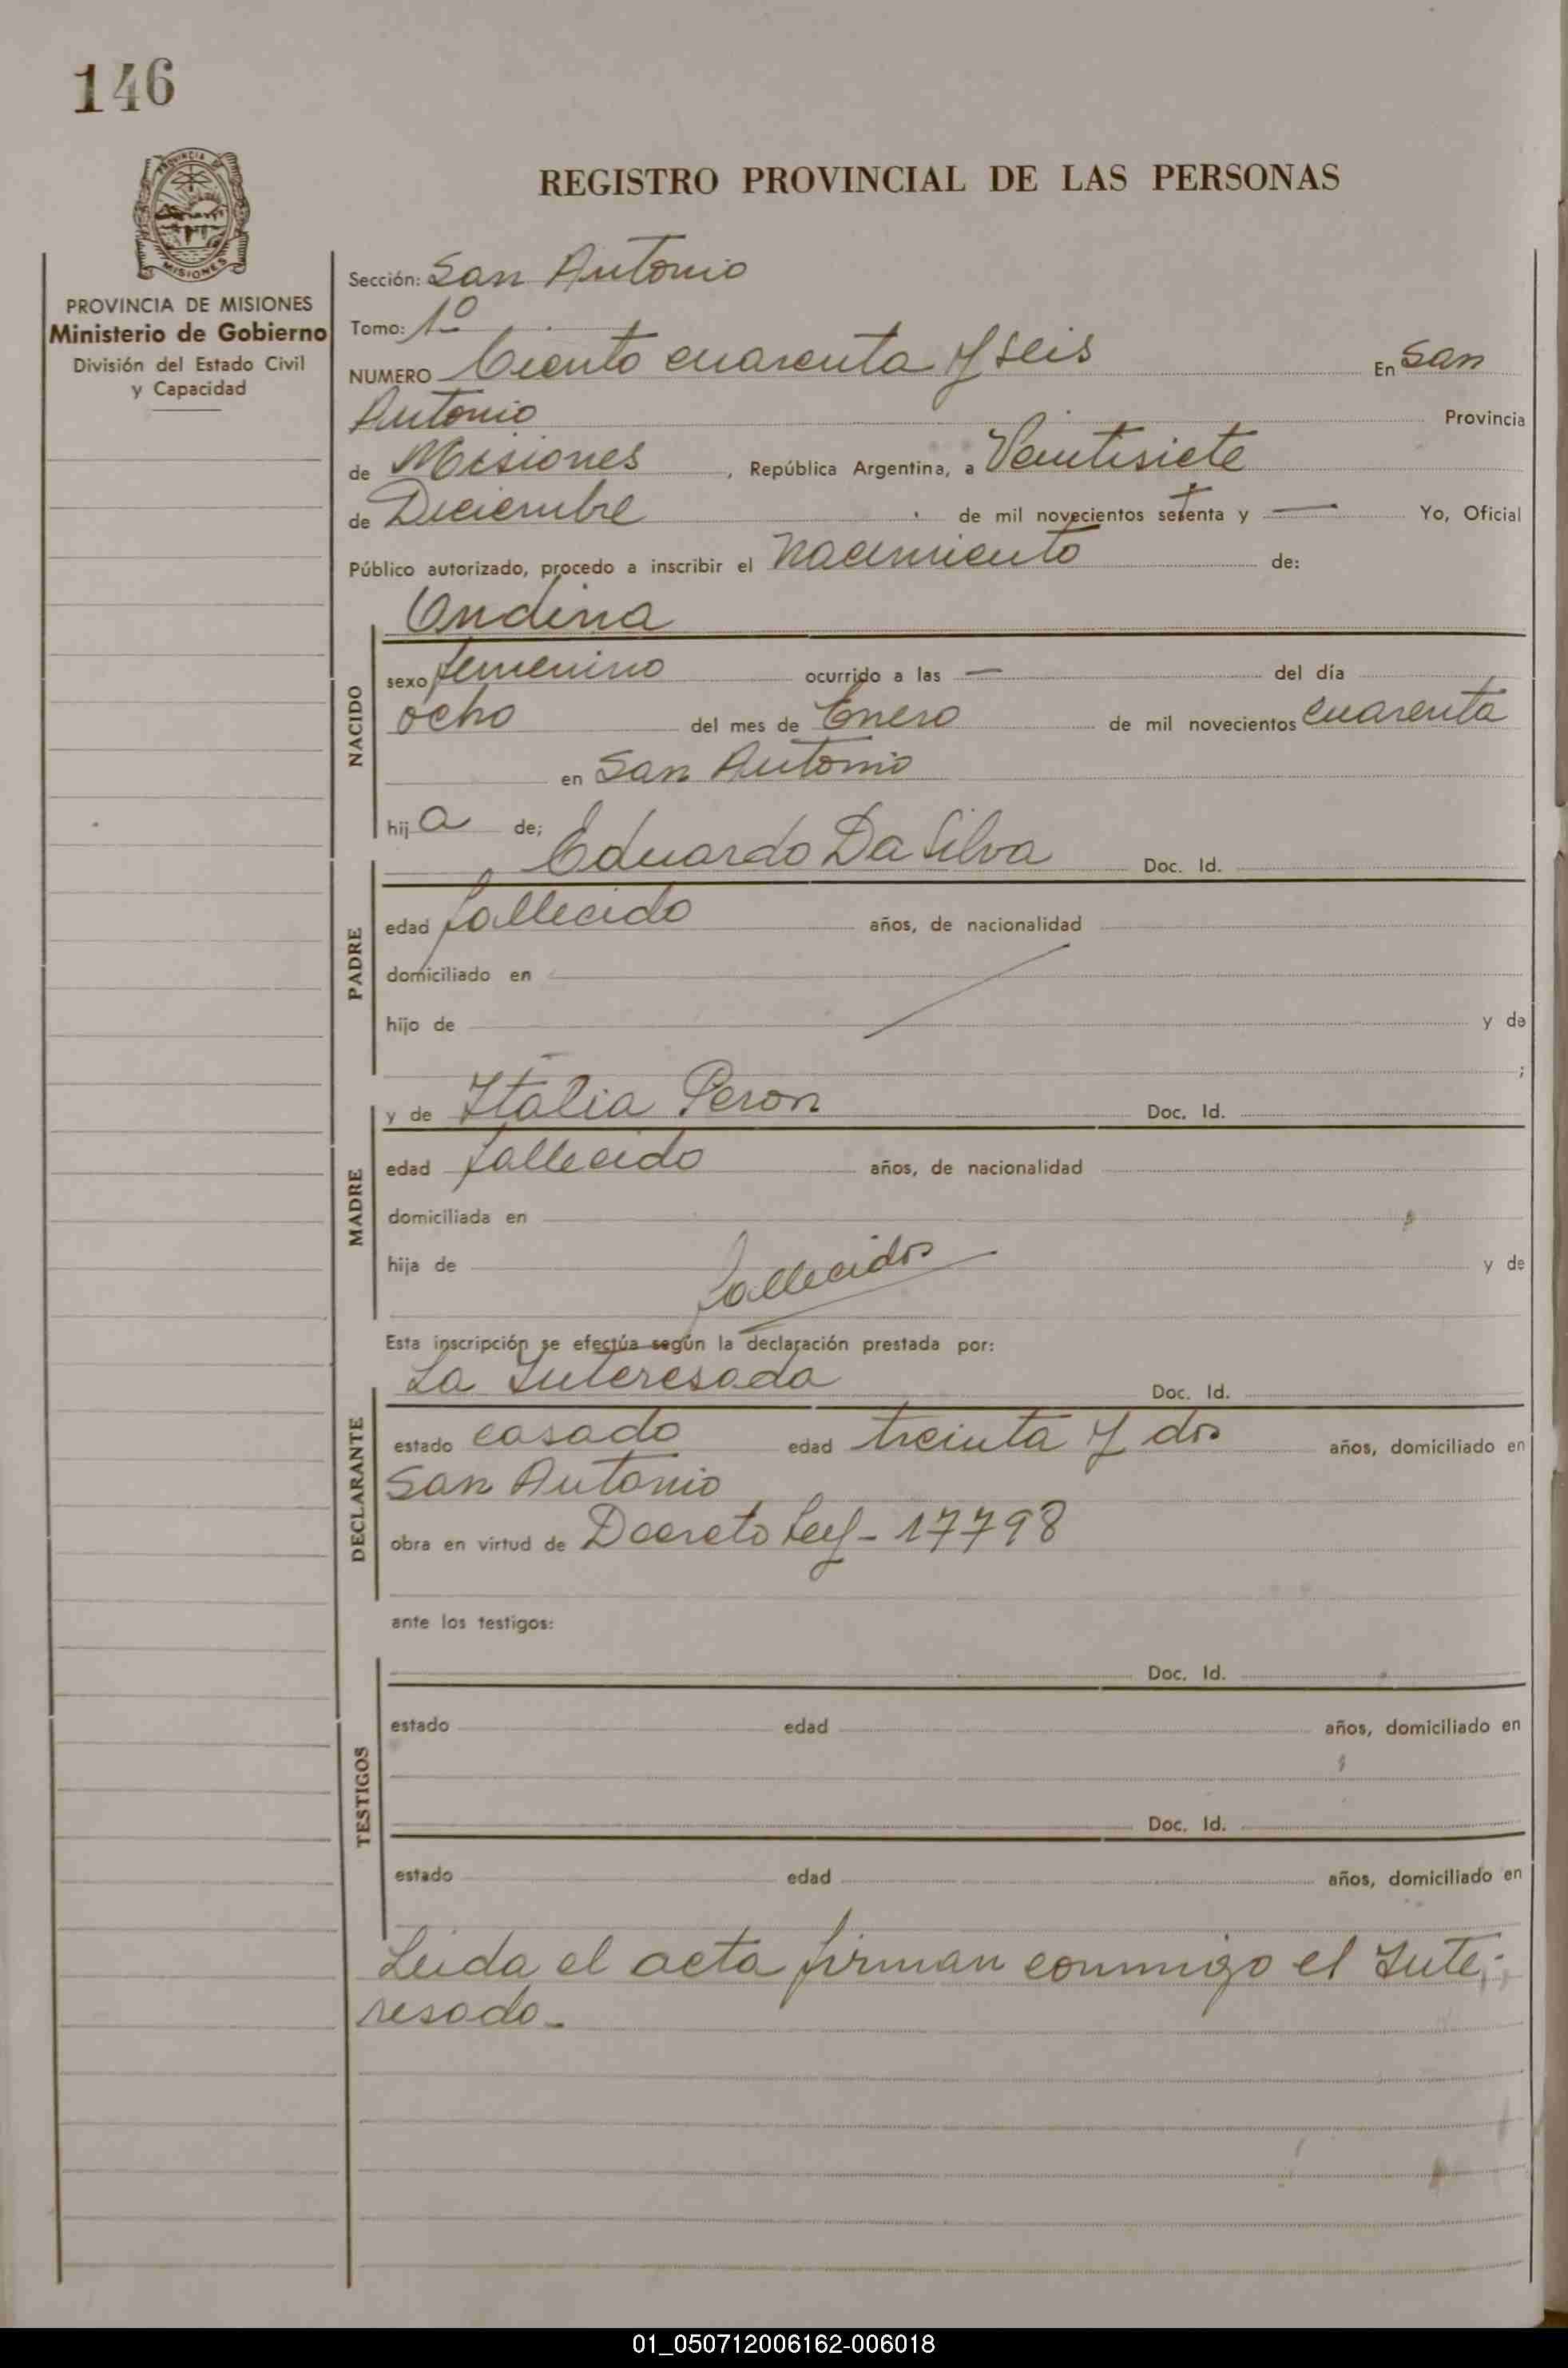 146
PROVINCIA DE
MISIONES
PROVINCIA DE MISIONES
Ministerio de Gobierno
División del Estado Civil
y Capacidad
REGISTRO PROVINCIAL DE LAS PERSONAS
Sección: San Antonio
Tomo: 1º
NUMERO Ciento cuarenta y seis En San
Antonio Provincia
de Misiones, República Argentina, a Veintisiete
de Diciembre de mil novecientos setenta y — Yo, Oficial
Público autorizado, procedo a inscribir el nacimiento de:
Ondina
NACIDO
sexo femenino ocurrido a las — del día
ocho del mes de Enero de mil novecientos cuarenta
en San Antonio
hija de;
Eduardo Da Silva Doc. Id.
PADRE
edad fallecido años, de nacionalidad
domiciliado en
hijo de y de
;
y de Italia Peron Doc. Id.
MADRE
edad fallecido años, de nacionalidad
domiciliada en
hija de fallecidos y de
Esta inscripción se efectúa según la declaración prestada por:
La Interesada Doc. Id.
DECLARANTE
estado casado edad treinta y dos años, domiciliado en
San Antonio
obra en virtud de Decreto Ley - 17798
ante los testigos:
Doc. Id.
TESTIGOS
estado edad años, domiciliado en
Doc. Id.
estado edad años, domiciliado en
Leida el acta firman conmigo el Inte-
resado.
01_050712006162-006018